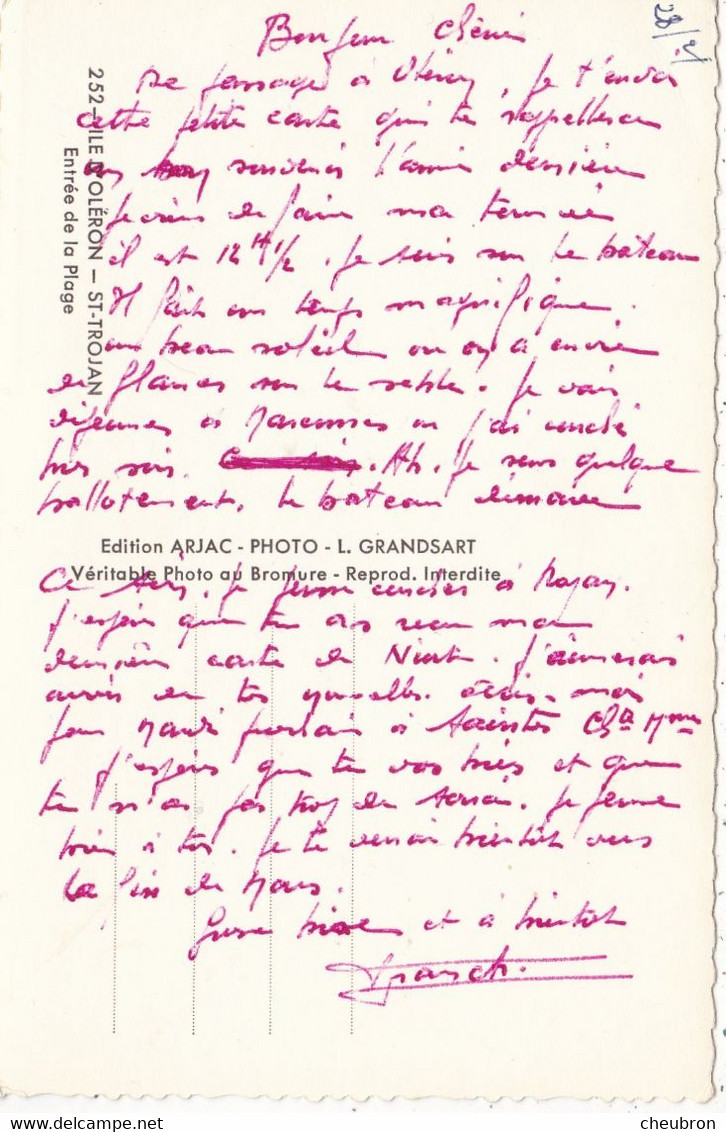 28/2
Bonjour Chérie
De passage à Oléron, je t'envoi
cette petite carte qui te rappellera
un bon souvenir l'année dernière
je viens de faire ma tournée
il est 12H 1/2. je suis sur le bateau
Il fait un temps magnifique.
un beau soleil ou on a envie
de flaner sur le sable. Je vais
déjeuner à Marennes ou j'ai couché
hier soir. Ah. Je sens quelque
ballotement. Le bateau démarre
Ce soir, je pense coucher à Royan.
J'espère que tu as reçu ma
dernière carte de Niort. J'aimerais
avoir de tes nouvelles. écris-moi
pour Mardi prochain à Saintes Ch
J'espère que tu vas bien et que
tu n'as pas trop de souci. Je pense
bien à toi. Je te verrai bientôt vers
la fin de Mars.
Grosse bise et à bientôt
252 - ILE D'OLÉRON - ST-TROJAN
Entrée de la Plage
Edition ARJAC - PHOTO - L. GRANDSART
Véritable Photo au Bromure - Reprod. Interdite
cheubron